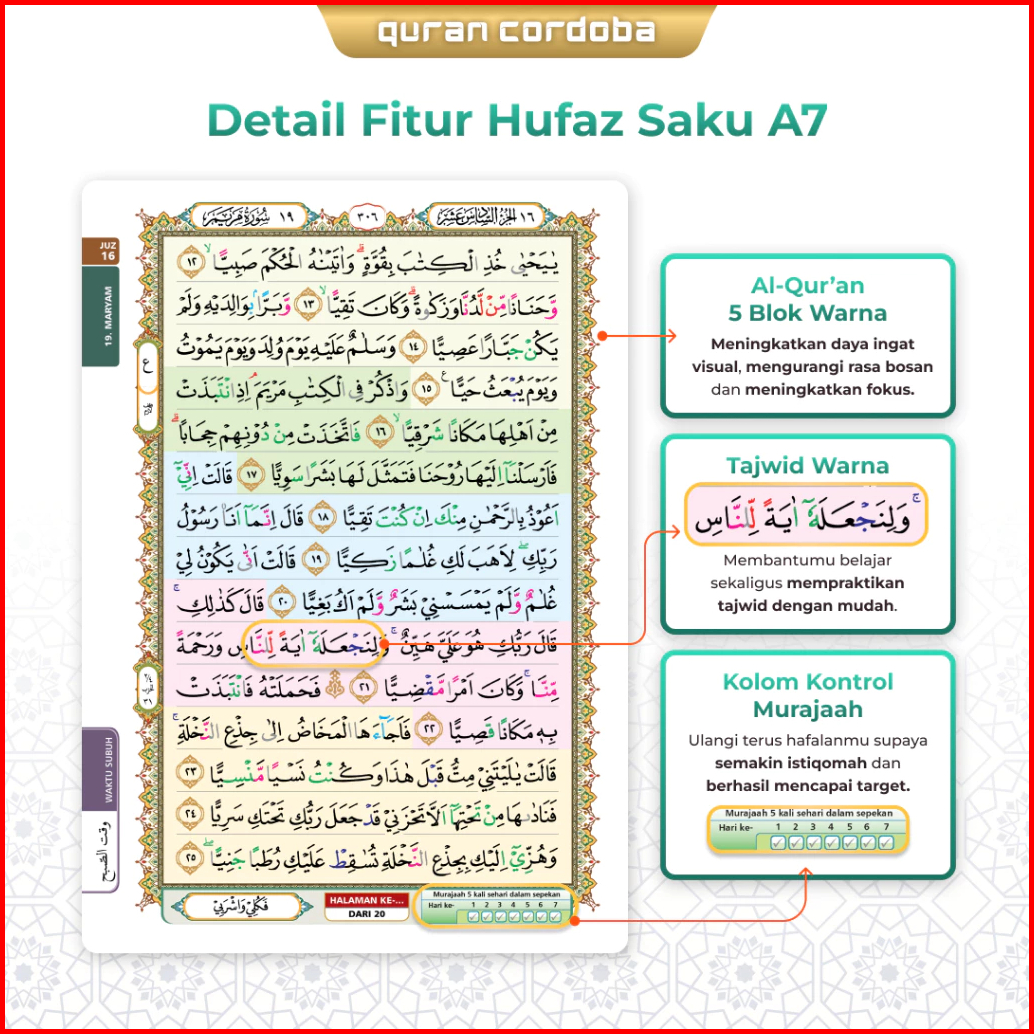 quran cordoba
Detail Fitur Hufaz Saku A7
١٩ سُوْرَةُ مَرْيَمَ
٣٠٦
١٦ الجُزْءُ السَّادِسَ عَشَرَ
JUZ
16
19. MARYAM
ع
يٰيَحْيٰى خُذِ الْكِتٰبَ بِقُوَّةٍ ۗوَاٰتَيْنٰهُ الْحُكْمَ صَبِيًّاۙ ١٢
وَّحَنَانًا مِّنْ لَّدُنَّا وَزَكٰوةً ۗوَكَانَ تَقِيًّاۙ ١٣ وَّبَرًّاۢ بِوَالِدَيْهِ وَلَمْ
يَكُنْ جَبَّارًا عَصِيًّا ١٤ وَسَلٰمٌ عَلَيْهِ يَوْمَ وُلِدَ وَيَوْمَ يَمُوْتُ
وَيَوْمَ يُبْعَثُ حَيًّا ࣖ ١٥ وَاذْكُرْ فِى الْكِتٰبِ مَرْيَمَۘ اِذِ انْتَبَذَتْ
مِنْ اَهْلِهَا مَكَانًا شَرْقِيًّاۙ ١٦ فَاتَّخَذَتْ مِنْ دُوْنِهِمْ حِجَابًاۗ
فَاَرْسَلْنَآ اِلَيْهَا رُوْحَنَا فَتَمَثَّلَ لَهَا بَشَرًا سَوِيًّا ١٧ قَالَتْ اِنِّيْٓ
اَعُوْذُ بِالرَّحْمٰنِ مِنْكَ اِنْ كُنْتَ تَقِيًّا ١٨ قَالَ اِنَّمَآ اَنَا۠ رَسُوْلُ
رَبِّكِۖ لِاَهَبَ لَكِ غُلٰمًا زَكِيًّا ١٩ قَالَتْ اَنّٰى يَكُوْنُ لِيْ
غُلٰمٌ وَّلَمْ يَمْسَسْنِيْ بَشَرٌ وَّلَمْ اَكُ بَغِيًّا ٢٠ قَالَ كَذٰلِكِۚ
قَالَ رَبُّكِ هُوَ عَلَيَّ هَيِّنٌۚ وَلِنَجْعَلَهٗٓ اٰيَةً لِّلنَّاسِ وَرَحْمَةً
مِّنَّاۚ وَكَانَ اَمْرًا مَّقْضِيًّا ٢١ ۞ فَحَمَلَتْهُ فَانْتَبَذَتْ
بِهٖ مَكَانًا قَصِيًّا ٢٢ فَاَجَاۤءَهَا الْمَخَاضُ اِلٰى جِذْعِ النَّخْلَةِۚ
قَالَتْ يٰلَيْتَنِيْ مِتُّ قَبْلَ هٰذَا وَكُنْتُ نَسْيًا مَّنْسِيًّا ٢٣
فَنَادٰىهَا مِنْ تَحْتِهَآ اَلَّا تَحْزَنِيْ قَدْ جَعَلَ رَبُّكِ تَحْتَكِ سَرِيًّا ٢٤
وَهُزِّيْٓ اِلَيْكِ بِجِذْعِ النَّخْلَةِ تُسٰقِطْ عَلَيْكِ رُطَبًا جَنِيًّاۖ ٢٥
WAKTU SUBUH
وقت الصّبح
فَكُلِيْ وَاشْرَبِيْ
HALAMAN KE-...
DARI 20
Murajaah 5 kali sehari dalam sepekan
Hari ke- 1 2 3 4 5 6 7
Al-Qur’an
5 Blok Warna
Meningkatkan daya ingat
visual, mengurangi rasa bosan
dan meningkatkan fokus.
Tajwid Warna
وَلِنَجْعَلَهٗٓ اٰيَةً لِّلنَّاسِ ۚ
Membantumu belajar
sekaligus mempraktikan
tajwid dengan mudah.
Kolom Kontrol
Murajaah
Ulangi terus hafalanmu supaya
semakin istiqomah dan
berhasil mencapai target.
Murajaah 5 kali sehari dalam sepekan
Hari ke- 1 2 3 4 5 6 7